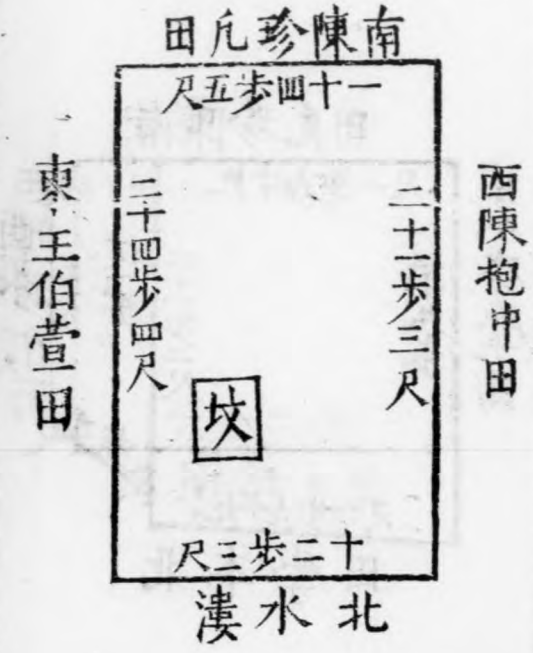 南陳珍凢田
一十四步五尺
西陳抱中田
二十一步三尺
二十四步四尺
東王伯萱田
坟
十二步三尺
北水溇